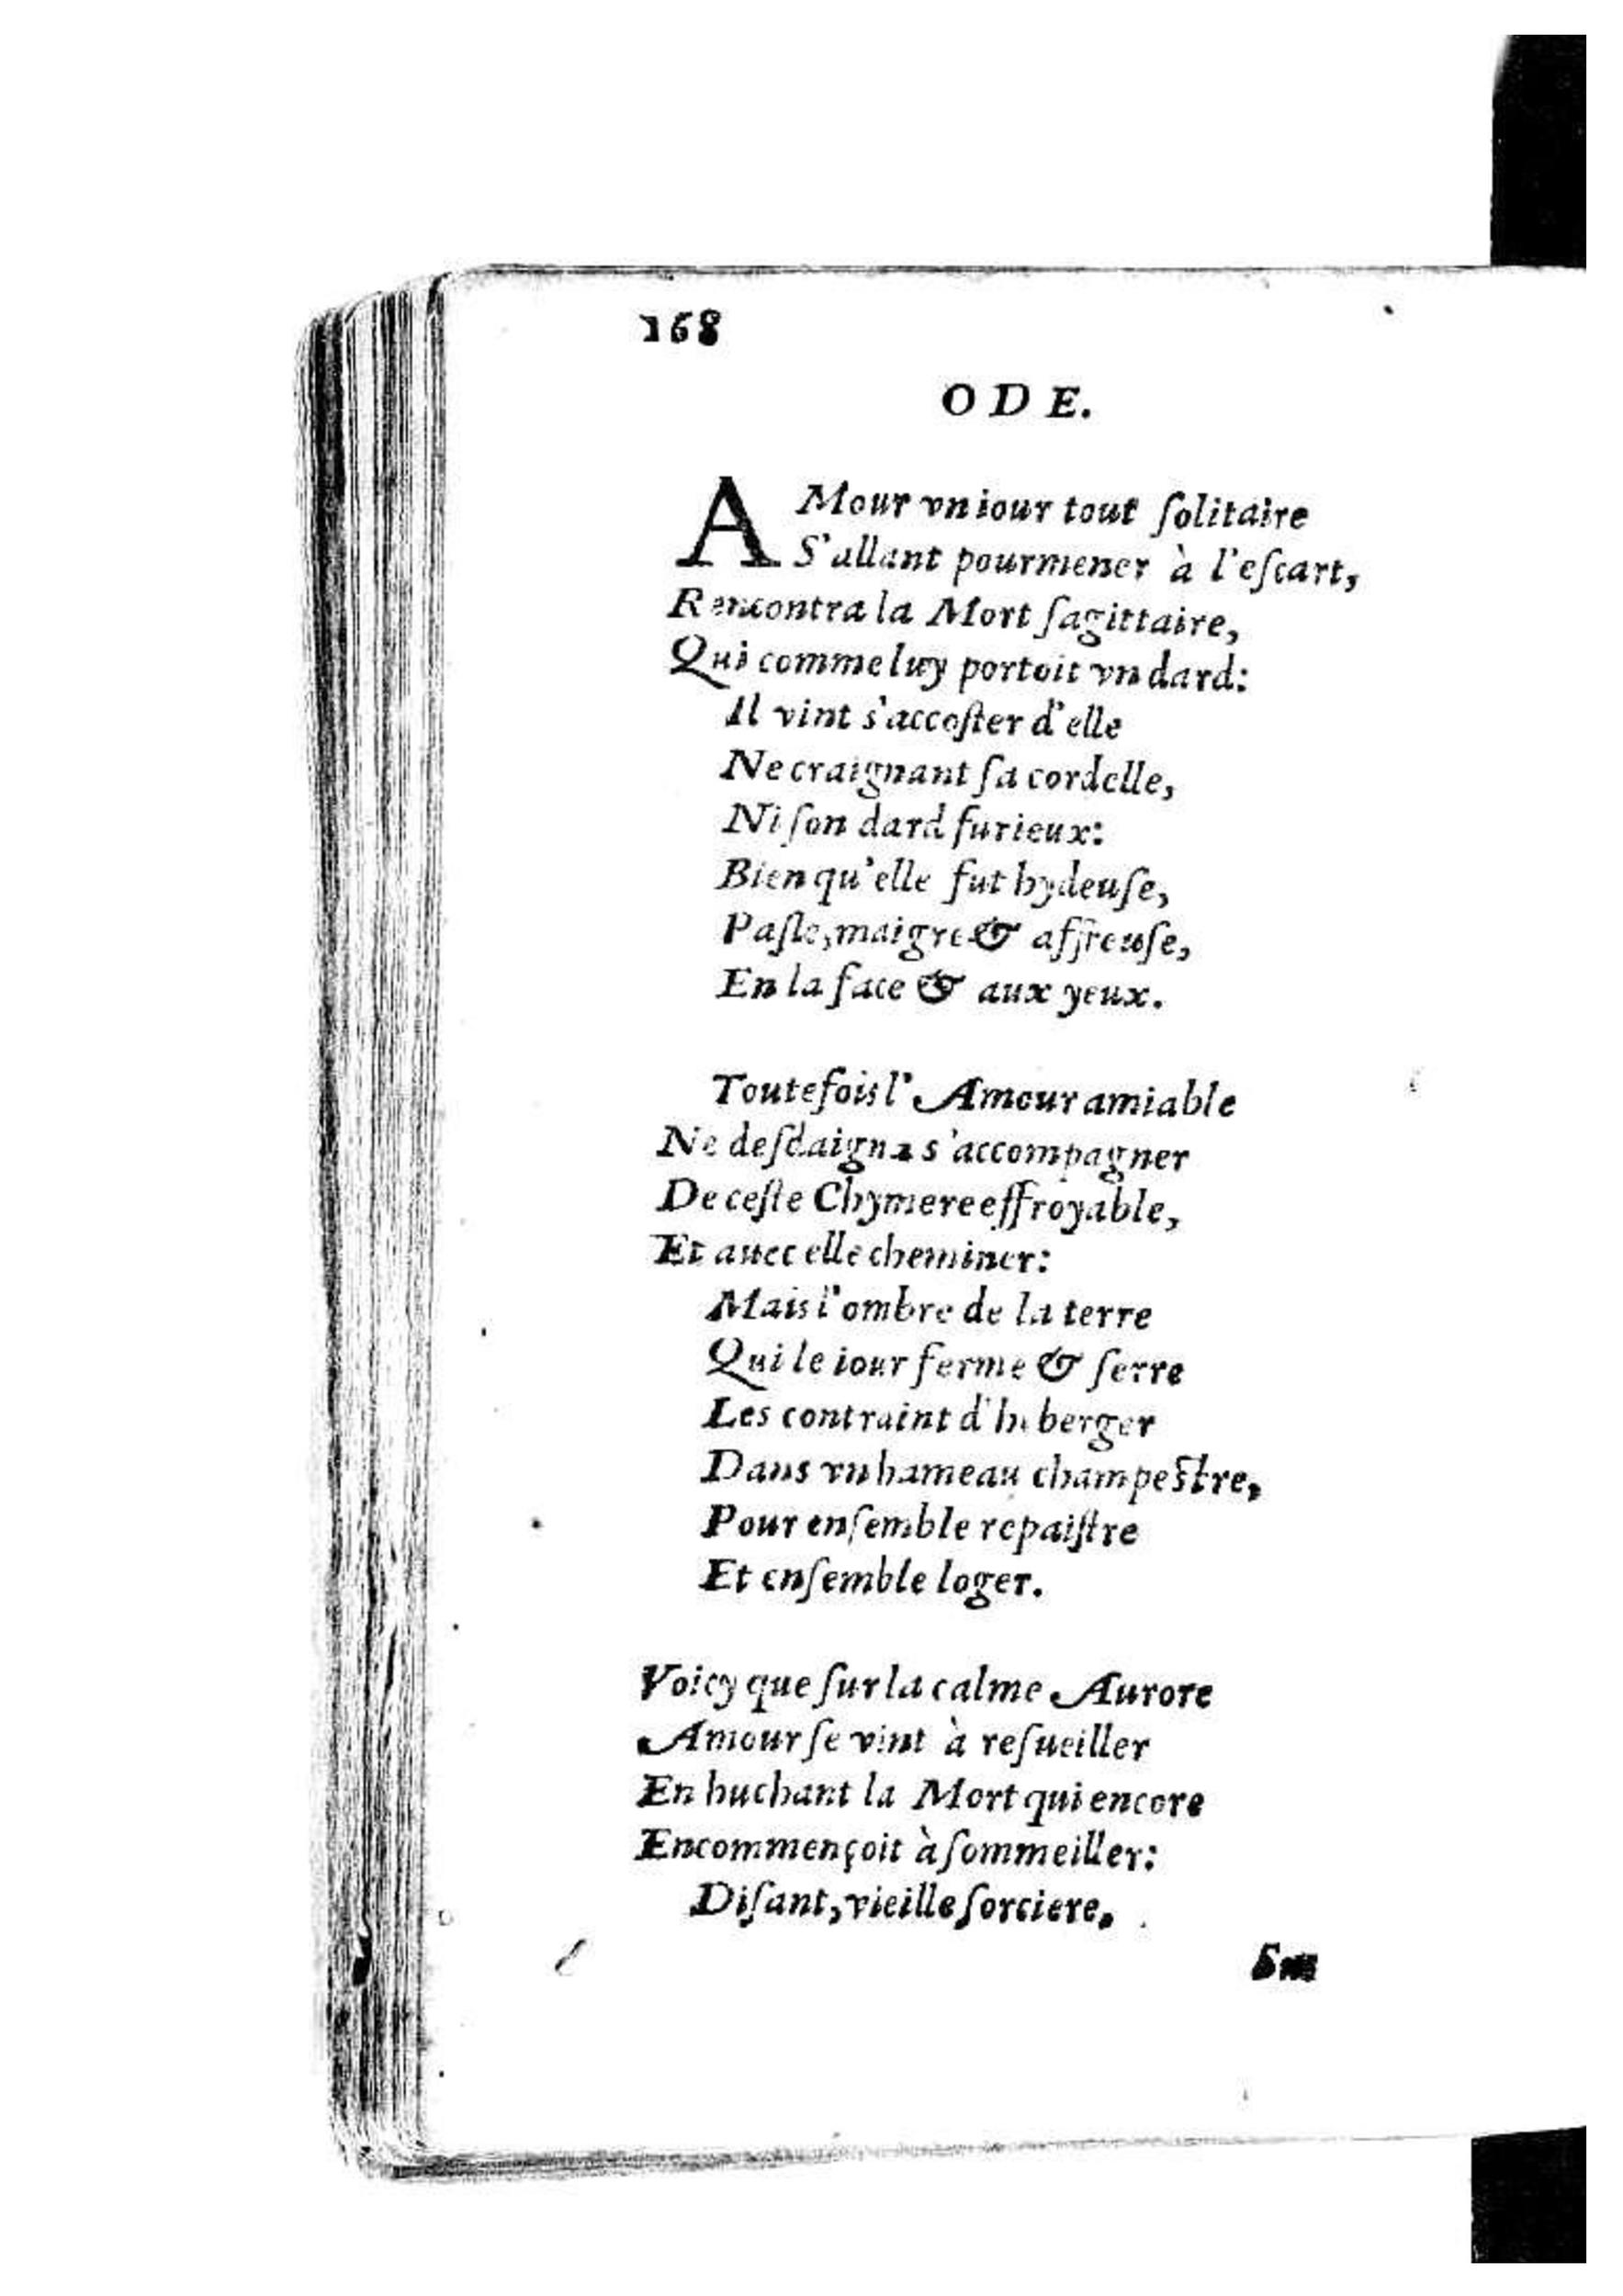 168
ODE.
AMour vn iour tout ſolitaire
S'allant pourmener à l'eſcart,
Rencontra la Mort ſagittaire,
Qui comme luy portoit vn dard:
Il vint s'accoſter d'elle
Ne craignant ſa cordelle,
Ni ſon dard furieux:
Bien qu'elle fut hydeuſe,
Paſle, maigre & affreuſe,
En la face & aux yeux.
Toutefois l'Amour amiable
Ne deſdaigna s'accompagner
De ceſte Chymere effroyable,
Et auec elle cheminer:
Mais l'ombre de la terre
Qui le iour ferme & ſerre
Les contraint d'heberger
Dans vn hameau champeſtre,
Pour enſemble repaiſtre
Et enſemble loger.
Voicy que ſur la calme Aurore
Amour ſe vint à reſueiller
En huchant la Mort qui encore
Encommençoit à ſommeiller:
Diſant, vieille ſorciere,